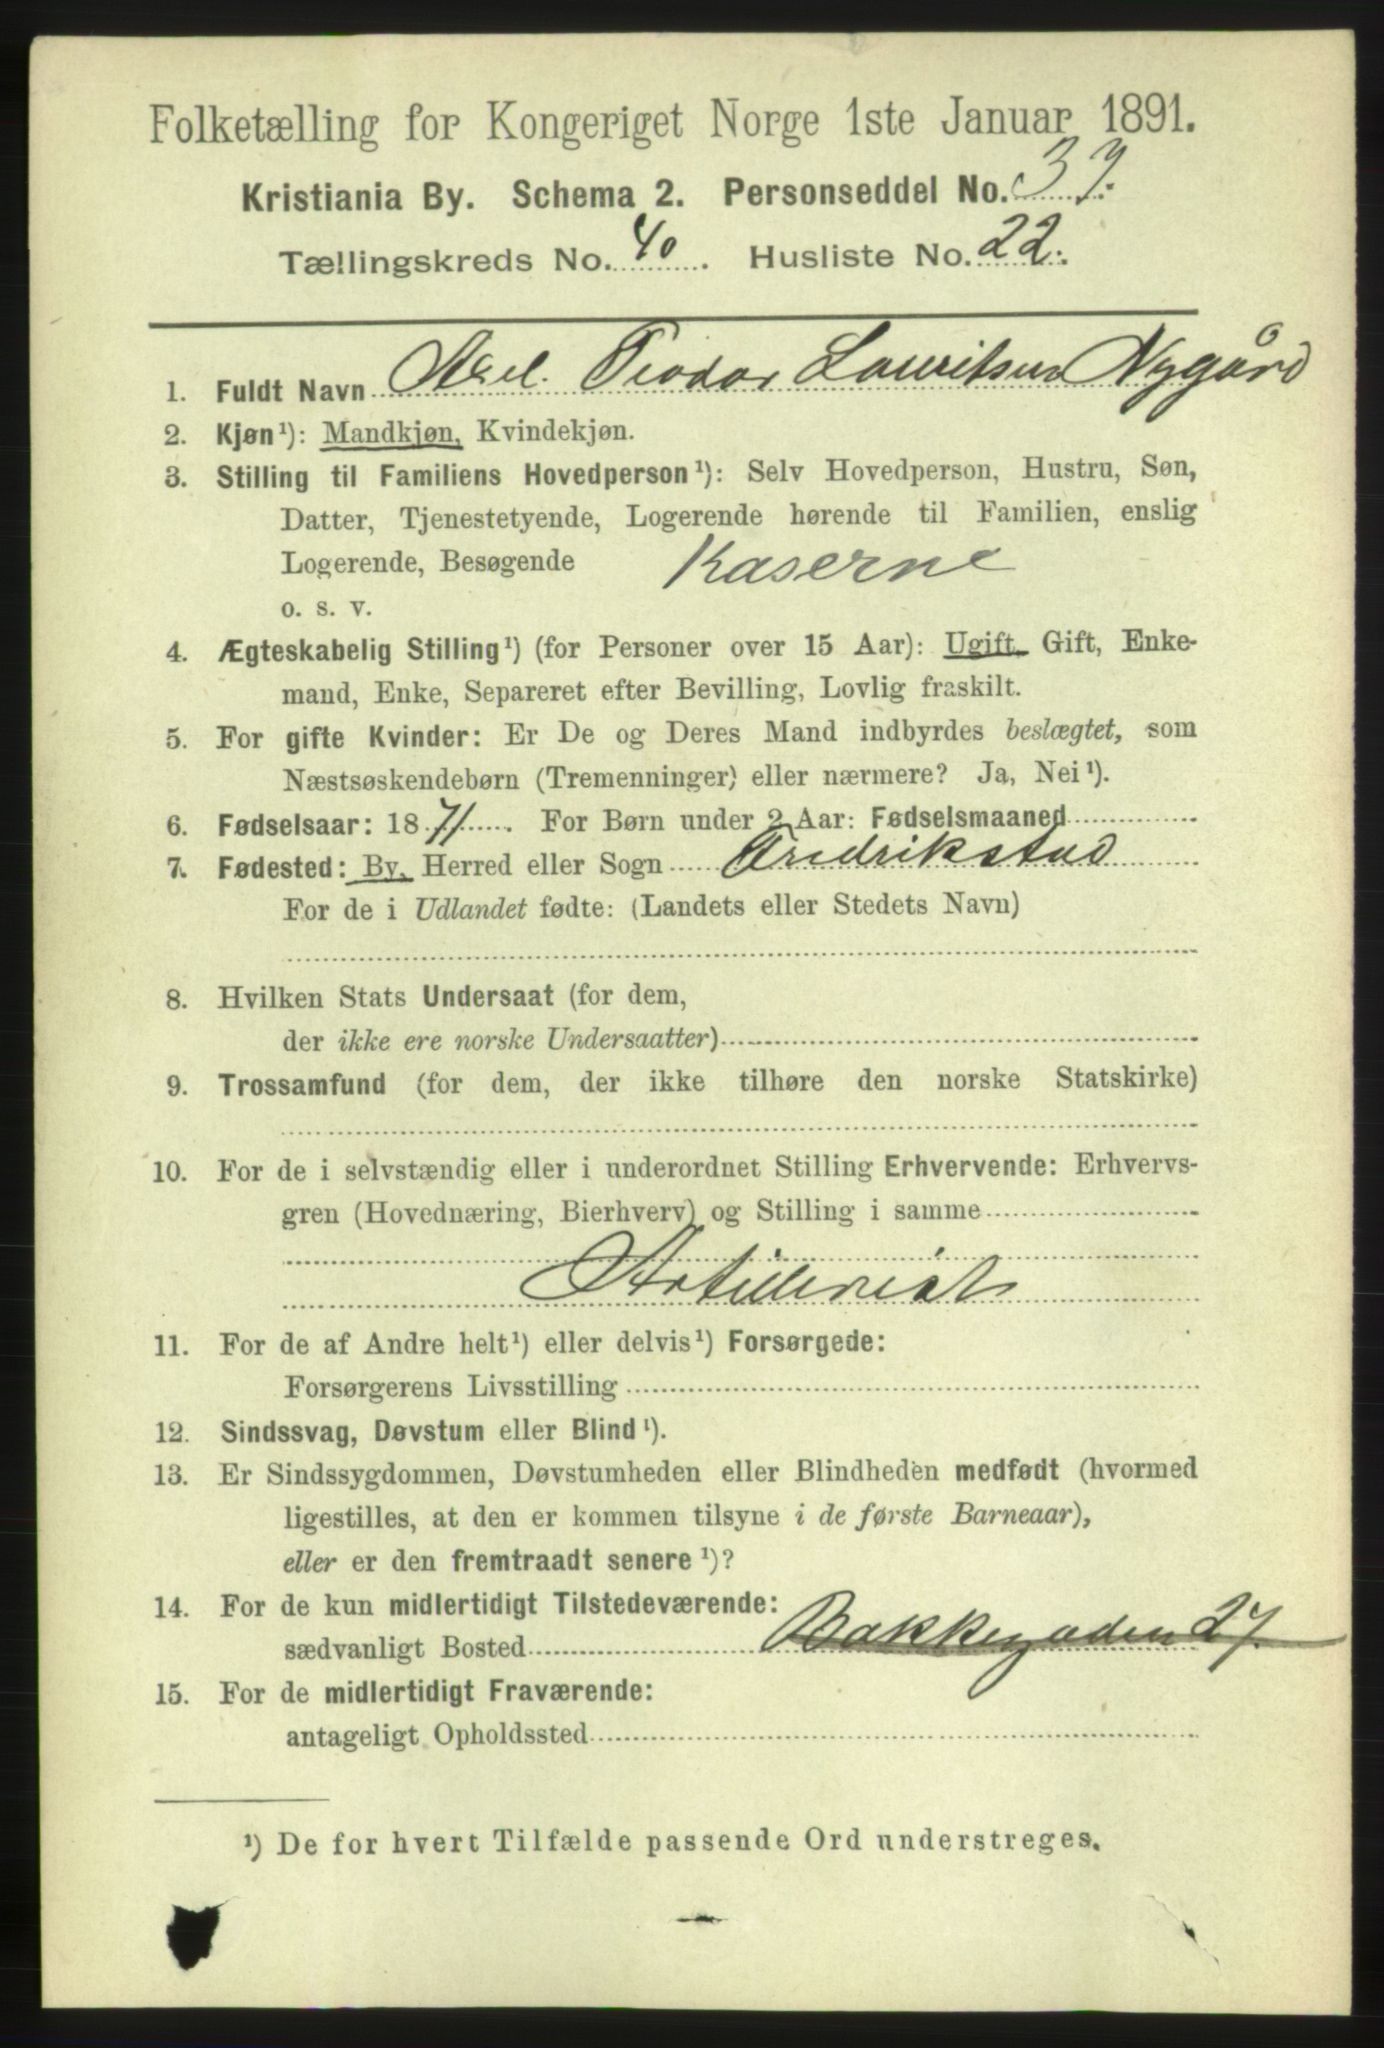 Folketælling for Kongeriget Norge 1ste Januar 1891.
Kristiania By. Schema 2. Personseddel No. 37.
Tællingskreds No. 40. Husliste No. 22.
1. Fuldt Navn Axel. Teodor Lauritsen Nygård
2. Kjøn¹): Mandkjøn, Kvindekjøn.
3. Stilling til Familiens Hovedperson¹): Selv Hovedperson, Hustru, Søn,
Datter, Tjenestetyende, Logerende hørende til Familien, enslig
Logerende, Besøgende Kaserne
o. s. v.
4. Ægteskabelig Stilling¹) (for Personer over 15 Aar): Ugift, Gift, Enke-
mand, Enke, Separeret efter Bevilling, Lovlig fraskilt.
5. For gifte Kvinder: Er De og Deres Mand indbyrdes beslægtet, som
Næstsøskendebørn (Tremenninger) eller nærmere? Ja, Nei¹).
6. Fødselsaar: 1871. For Børn under 2 Aar: Fødselsmaaned
7. Fødested: By, Herred eller Sogn Fredrikstad
For de i Udlandet fødte: (Landets eller Stedets Navn)
8. Hvilken Stats Undersaat (for dem,
der ikke ere norske Undersaatter)
9. Trossamfund (for dem, der ikke tilhøre den norske Statskirke)
10. For de i selvstændig eller i underordnet Stilling Erhvervende: Erhvervs-
gren (Hovednæring, Bierhverv) og Stilling i samme
Artillerist
11. For de af Andre helt¹) eller delvis¹) Forsørgede:
Forsørgerens Livsstilling
12. Sindssvag, Døvstum eller Blind¹).
13. Er Sindssygdommen, Døvstumheden eller Blindheden medfødt (hvormed
ligestilles, at den er kommen tilsyne i de første Barneaar),
eller er den fremtraadt senere¹)?
14. For de kun midlertidigt Tilstedeværende:
sædvanligt Bosted Bakkegaden 27.
15. For de midlertidigt Fraværende:
antageligt Opholdssted
¹) De for hvert Tilfælde passende Ord understreges.